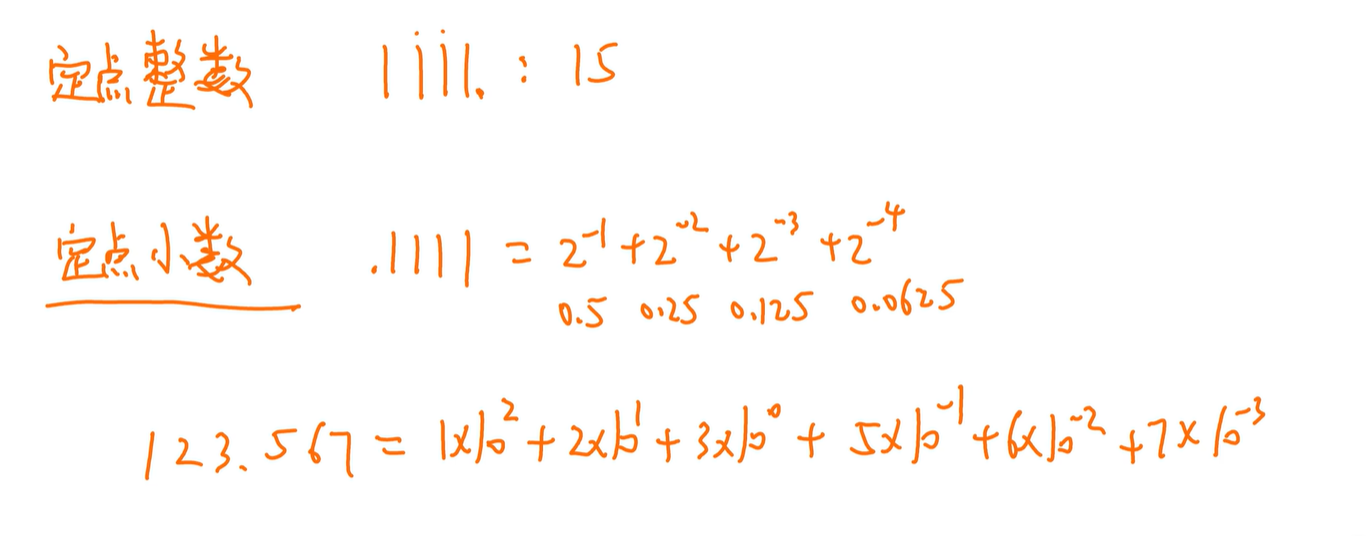 定点整数 1111. : 15
定点小数 .1111 = 2⁻¹+2⁻²+2⁻³+2⁻⁴
0.5 0.25 0.125 0.0625
123.567 = 1×10²+2×10¹+3×10⁰+5×10⁻¹+6×10⁻²+7×10⁻³